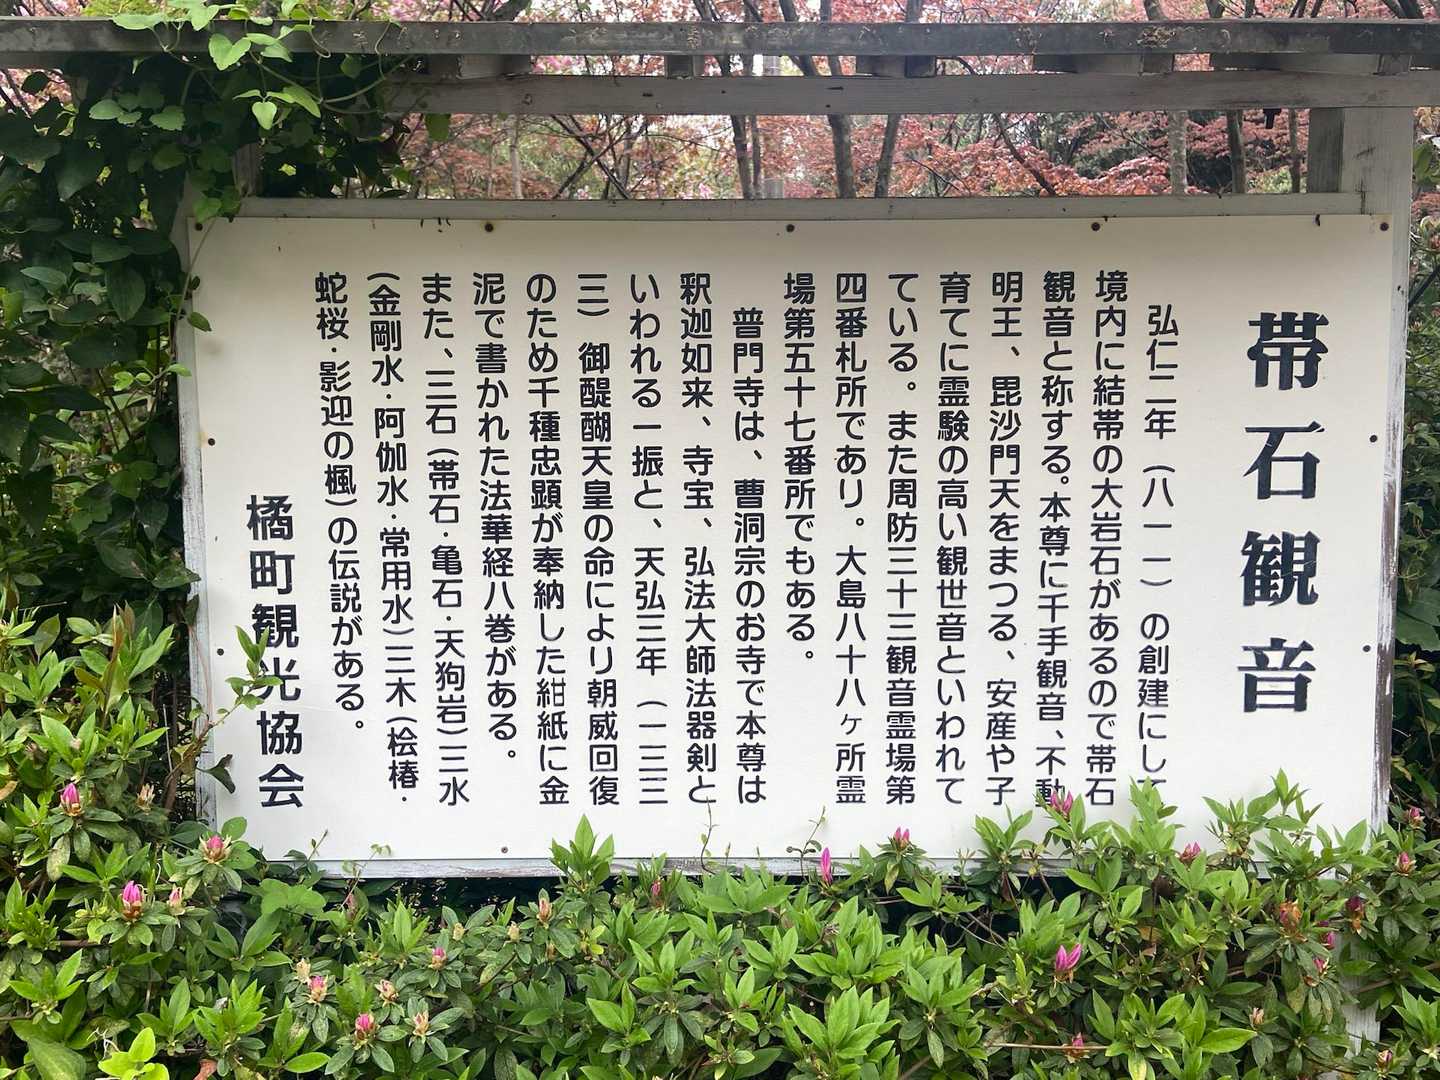 帯石観音
弘仁二年（八一一）の創建にして
境内に結帯の大岩石があるので帯石
観音と称する。本尊に千手観音、不動
明王、毘沙門天をまつる、安産や子
育てに霊験の高い観世音といわれて
ている。また周防三十三観音霊場第
四番札所であり。大島八十八ヶ所霊
場第五十七番所でもある。
普門寺は、曹洞宗のお寺で本尊は
釈迦如来、寺宝、弘法大師法器剣と
いわれる一振と、天弘三年（一三三
三）御醍醐天皇の命により朝威回復
のため千種忠顕が奉納した紺紙に金
泥で書かれた法華経八巻がある。
また、三石（帯石・亀石・天狗岩）三水
（金剛水・阿伽水・常用水）三木（桧椿・
蛇桜・影迎の楓）の伝説がある。
橘町観光協会